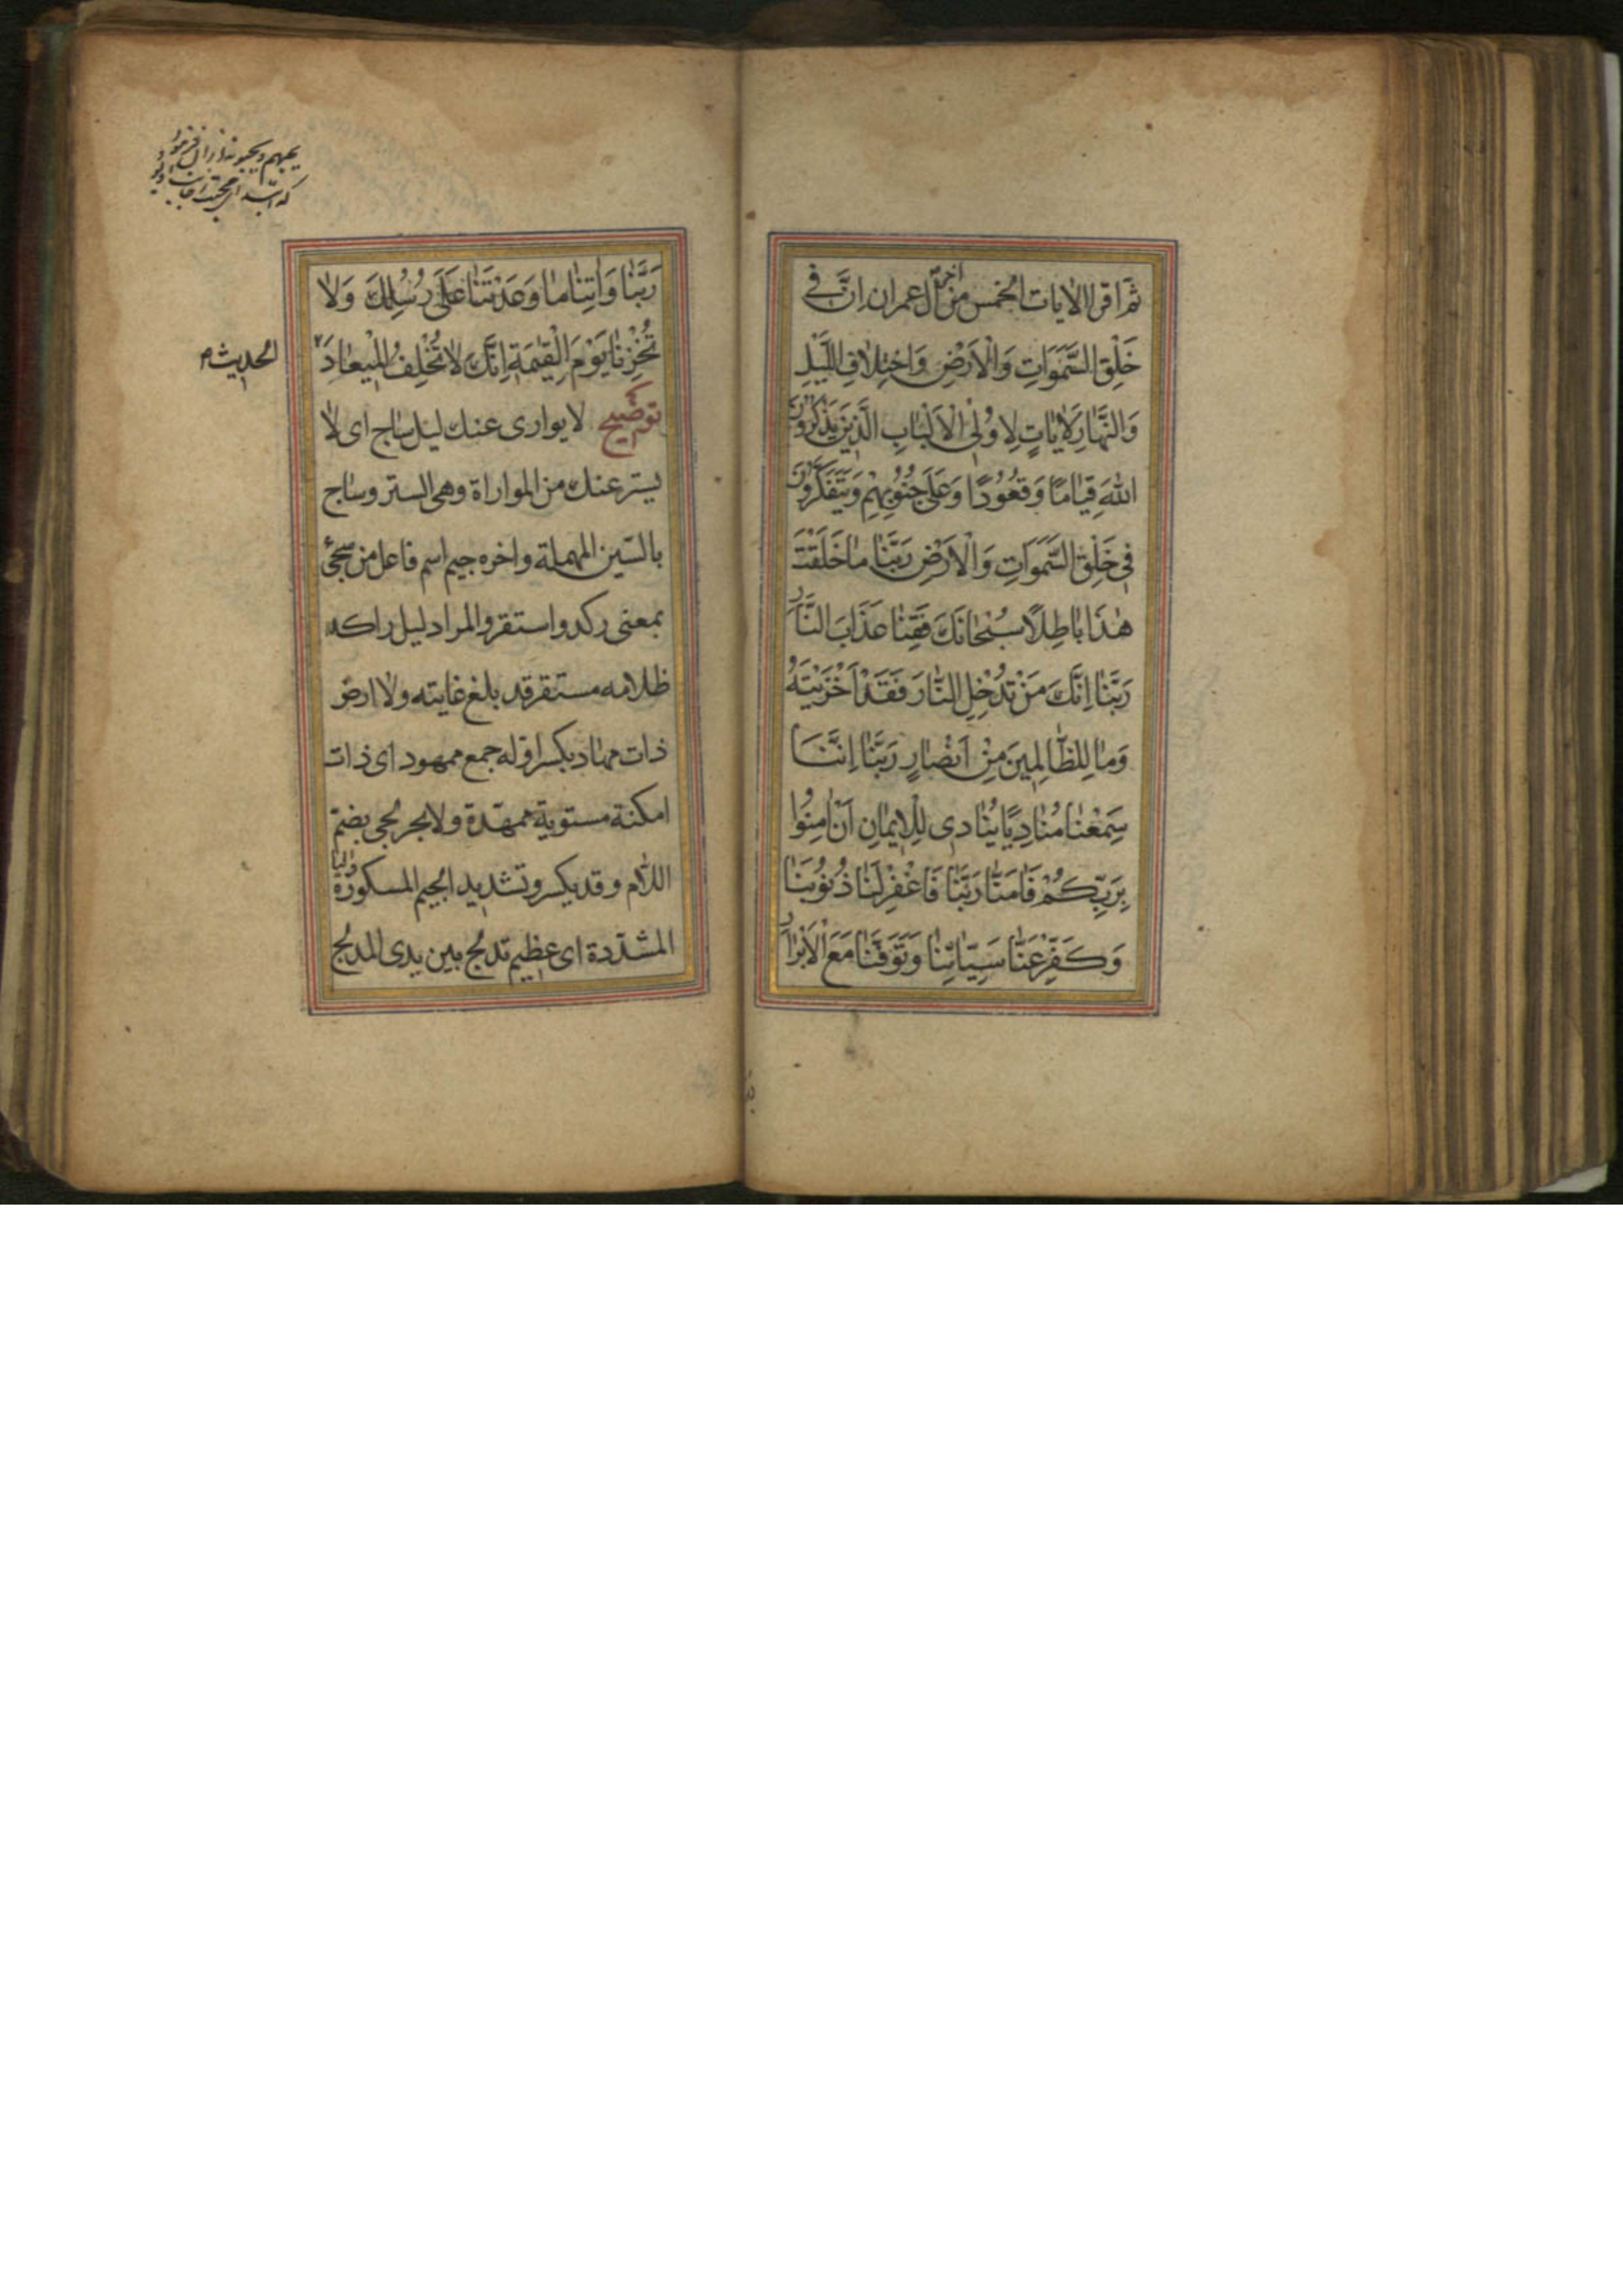 ثم اقرا الايات الخمس من اخر آل عمران اِنَّ فی
خَلْقِ السَّمٰوَاتِ وَالْاَرْضِ وَاخْتِلافِ اللَّيْلِ
وَالنَّهارِ لَاٰياتٍ لِاُولِی الْاَلْبابِ الَّذِينَ يَذْكُرُونَ
اللهَ قِيامًا وَقُعُودًا وَعَلَى جُنُوبِهِمْ وَيَتَفَكَّرُونَ
فِی خَلْقِ السَّمٰوَاتِ وَالْاَرْضِ رَبَّنا ما خَلَقْتَ
هٰذَا باطِلًا سُبْحانَكَ فَقِنا عَذَابَ النَّارِ
رَبَّنا اِنَّكَ مَنْ تُدْخِلِ النّارَ فَقَدْ اَخْزَيْتَهُ
وَما لِلظّالِمِينَ مِنْ اَنْصارٍ رَبَّنا اِنَّنَا
سَمِعْنا مُنادِيًا يُنادِی لِلْايمانِ اَنْ اٰمِنُوا
بِرَبِّكُمْ فَاٰمَنّا رَبَّنا فَاغْفِرْ لَنا ذُنُوبَنا
وَكَفِّرْ عَنّا سَيِّاٰتِنا وَتَوَفَّنا مَعَ الْاَبْرارِ
رَبَّنا وَاٰتِنا ما وَعَدْتَنا عَلَى رُسُلِكَ وَلا
تُخْزِنا يَوْمَ الْقِيٰمَةِ اِنَّكَ لا تُخْلِفُ الْمِيعادَ
توضيح لا يواری عنك ليل ساج ای لا
يستر عنك من المواراة وهی الستر وساج
بالسّين المهملة واخره جيم اسم فاعل من سجی
بمعنی ركد واستقر والمراد ليل راكد
ظلامه مستقر قد بلغ غايته ولا ارض
ذات مهاد بكسر اوله جمع ممهود ای ذات
امكنة مستوية ممهّدة ولا بحر لجی بضمّ
اللّام وقد يكسر وتشديد الجيم المسكورة واليا
المشدّدة ای عظيم تدلج بين يدی المدلج
الحديث م
يحبهم ويحبونه